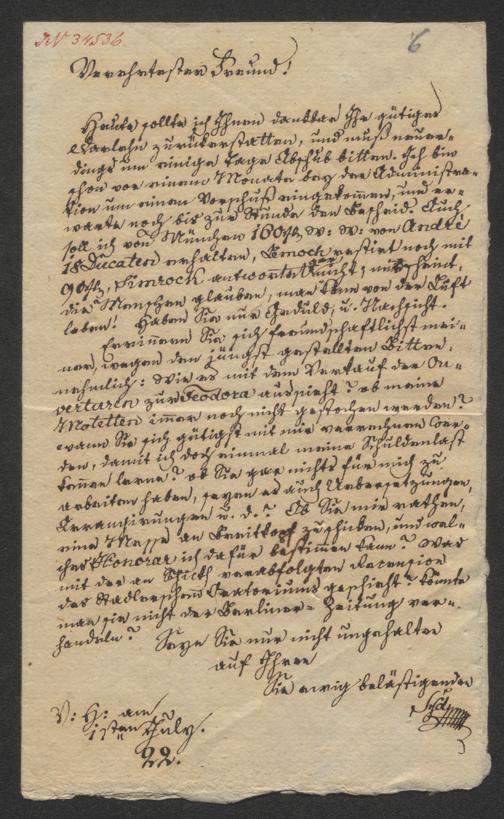 IN 34536
6
Verehrtester Freund!
Heute sollte ich Ihnen dankbar Ihr gütiges
Darlehn zurükerstatten, und muß neuer-
dings um einige Tage Abschub bitten. Ich bin
schon vor einem Monate bey der Administra-
tion um einen Vorschuß eingekommen, und er-
warte noch bis zur Stunde den Bescheid. Auch
soll ich von München 160 f W: W: von André
18 Ducaten erhalten, restirt noch mit
90 f, Simrock antwortet gar nicht, mir scheint,
die Menschen glauben, man kann von der Luft
leben! Haben Sie nur Geduld, u: Nachsicht.
Erinnern Sie sich freundschaftlichst mei-
ner, wegen den jüngst gestellten Bitten,
nehmlich: wie es mit dem Verkauf der Ou-
verturen zur Teodora aussieht? ob meine
Motetten immer noch nicht gestochen werden?
wann Sie sich gütigst mit mir verrechnen wer-
den, damit ich doch einmal meine Schuldenlast
kennen lerne? ob Sie gar nichts für mich zu
arbeiten haben, seyen es auch Uebersetzungen,
Arrangirungen u: d:? Ob Sie mir rathen,
eine Messe an Breitkopf zu schicken, und wel-
ches Honorar ich dafür bestimmen kann? Was
mit der an Schickh verabfolgten Recension
des Stadlerschen Oratoriums geschieht? könnte
man sie nicht der Berliner-Zeitung ver-
handeln? Seyn Sie nur nicht ungehalten
auf Ihren
Sie ewig belästigenden
V: H: am
1sten July.
22.